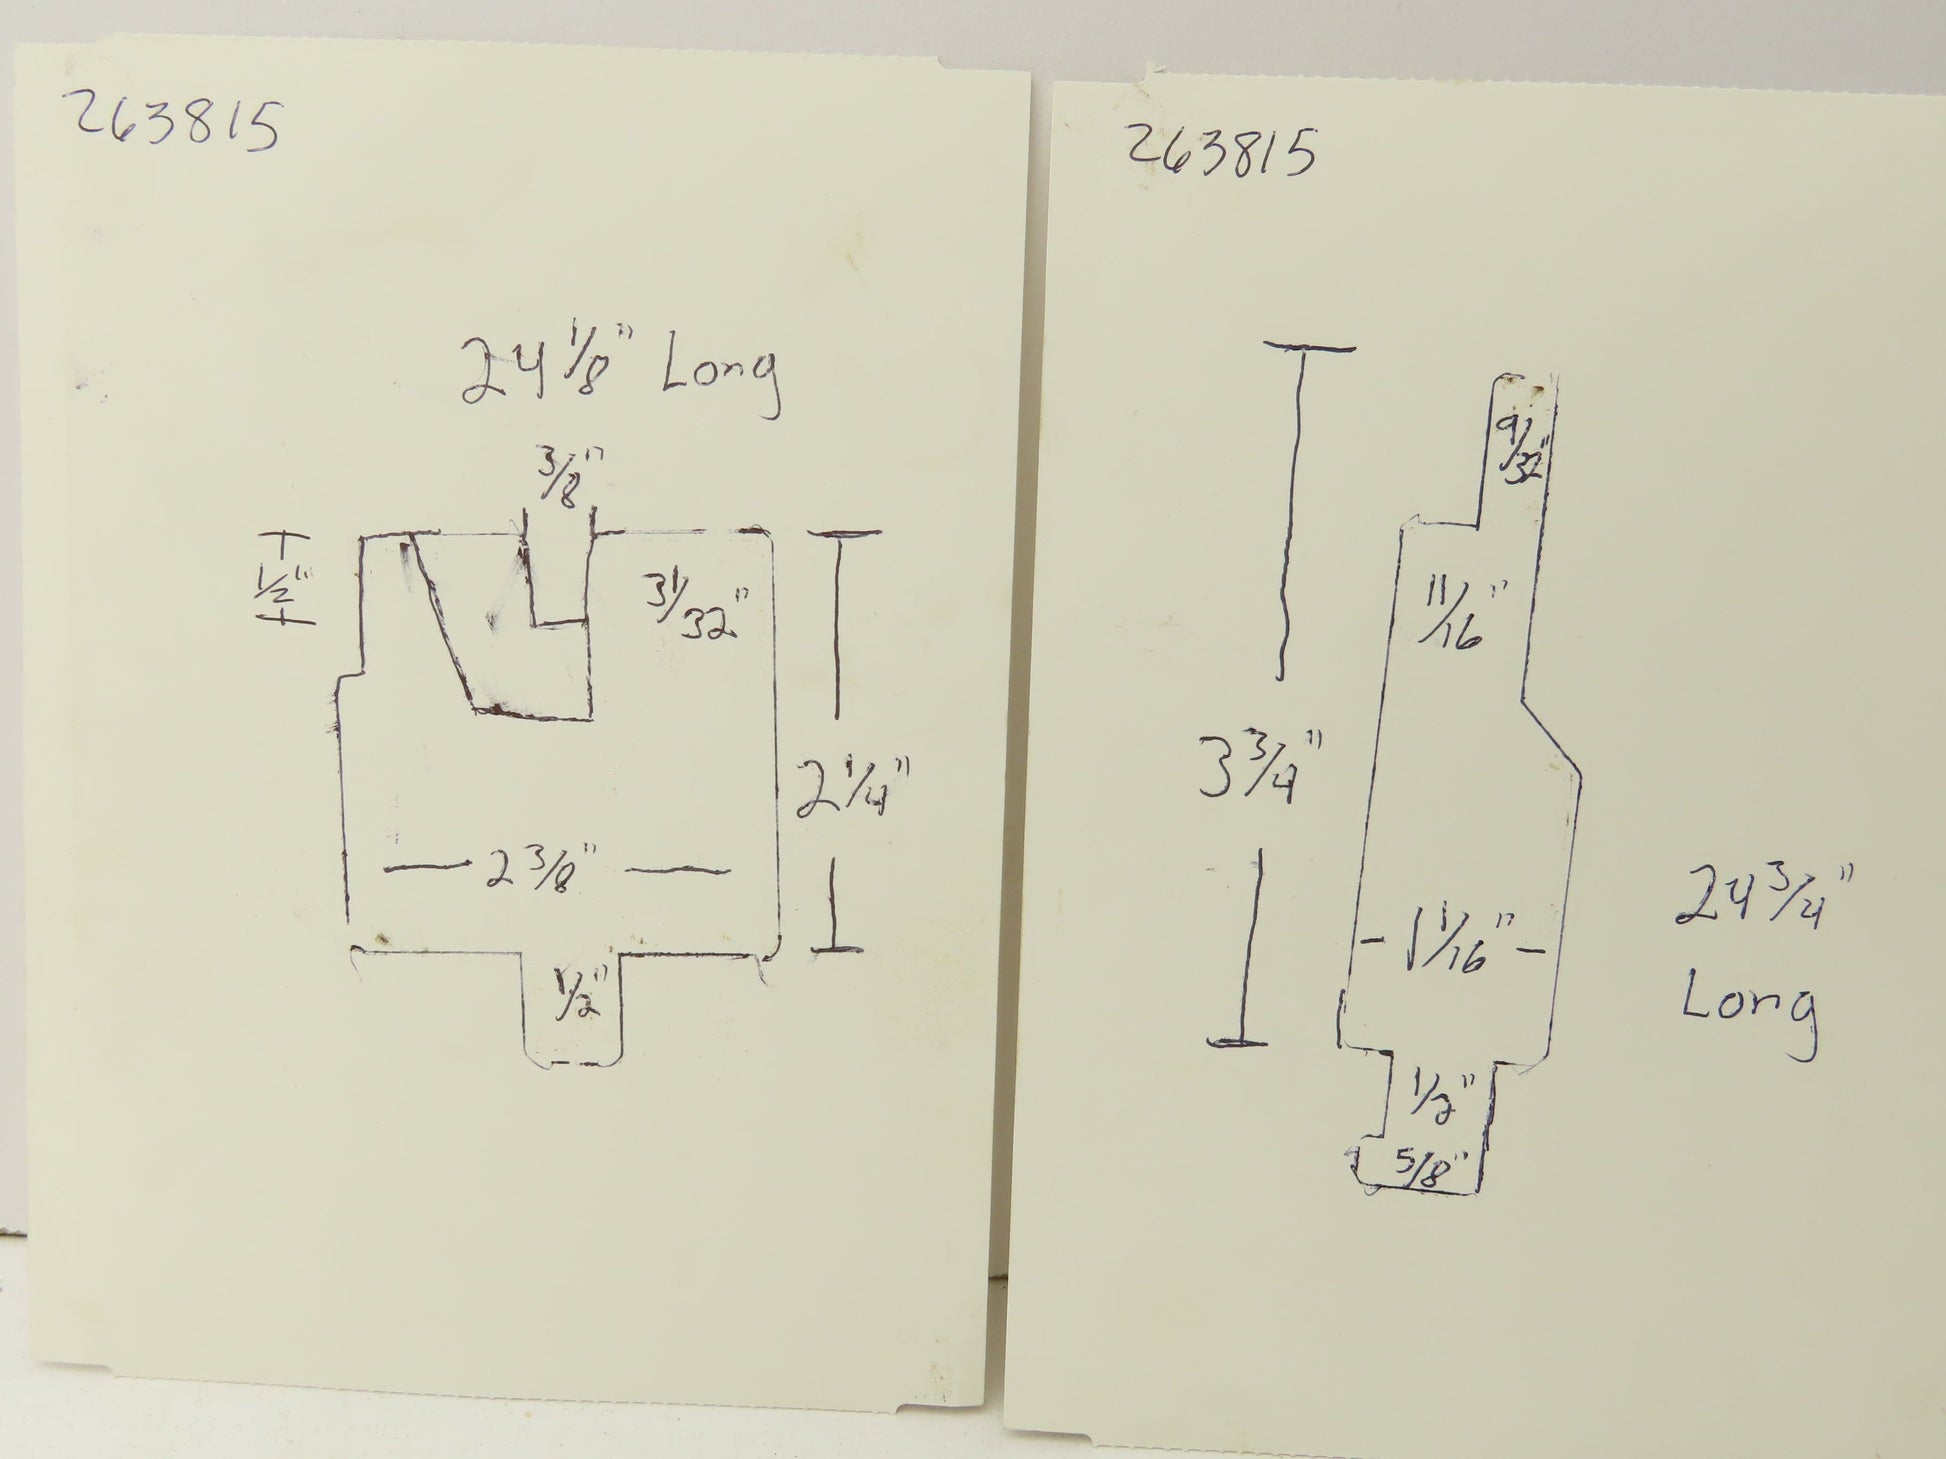 263815
24 1/8" Long
3/8"
1/2"
31/32"
2 1/4"
2 3/8"
1/2"
263815
9/32"
11/16"
3 3/4"
24 3/4"
Long
1 1/16"
1/2"
5/8"